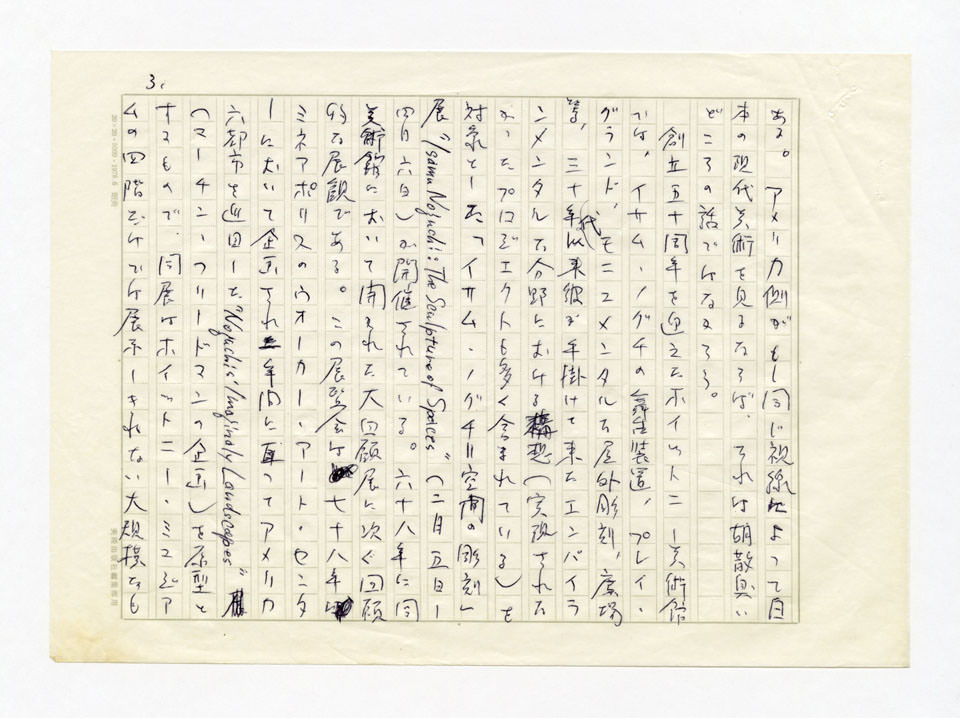 3.
ある。アメリカ側がもし同じ視線によって日
本の現代美術を見るならば、それは胡散臭い
どころの話ではなかろう。
創立五十周年を迎えたホイットニー美術館
では、イサム・ノグチの舞台装置、プレイ・
グランド、モニュメンタルな屋外彫刻、広場
等、三十年代以来彼が手掛けて来たエンバイラ
ンメンタルな分野における構想(実現されな
かったプロジェクトも多く含まれている)を
対象とした「イサム・ノグチ=空間の彫刻」
展 "Isamu Noguchi: The Sculpture of Spaces" (二月五日ー
四月六日)が開催されている。六十八年に同
美術館において開かれた大回顧展に次ぐ回顧
的な展観である。この展覧会は七十八年
ミネアポリスのウオーカー・アート・センタ
ーにおいて企画され二年間に亘ってアメリカ
六都市を巡回した "Noguchi's Imaginary Landscapes"
(マーチン・フリードマンの企画)を原型と
するもので、同展はホイットニー・ミュジア
ムの四階だけでは展示しきれない大規模なも